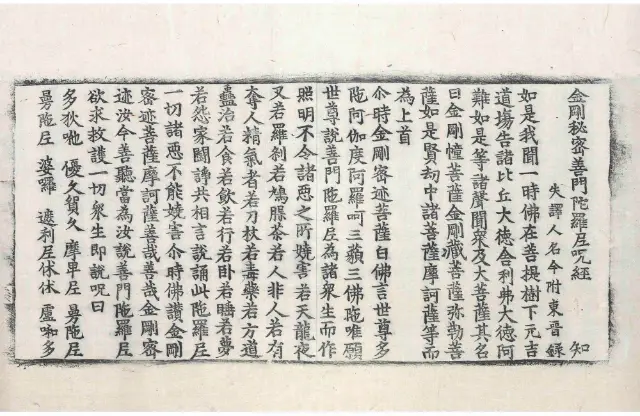 金剛秘密善門陀羅尼呪經 知
失譯人名今附東晉錄
如是我聞一時佛在菩提樹下元吉
道場告諸比丘大德舍利弗大德阿
難如是等諸聲聞衆及大菩薩其名
曰金剛幢菩薩金剛藏菩薩弥勒菩
薩如是賢劫中諸菩薩摩訶薩等而
為上首
尒時金剛密迹菩薩白佛言世尊多
陁阿伽度阿羅呵三藐三佛陁唯願
世尊說善門陁羅尼為諸衆生而作
照明不令諸惡之所嬈害若天龍夜
叉若羅刹若鳩槃茶若人非人若有
奪人精氣者若刀杖若毒藥若方道
蠱治若食若飲若行若卧若睡若夢
若怨家鬪諍共相言說誦此陁羅尼
一切諸惡不能嬈害尒時佛讚金剛
密迹菩薩摩訶薩善哉善哉金剛密
迹汝今善聽當為汝說善門陁羅尼
欲求救護一切衆生即說呪曰
多狄吔 優久賀久 摩車尼 㬅陁尼
㬅陁尼 婆羅 遮利尼休休 盧嘟多